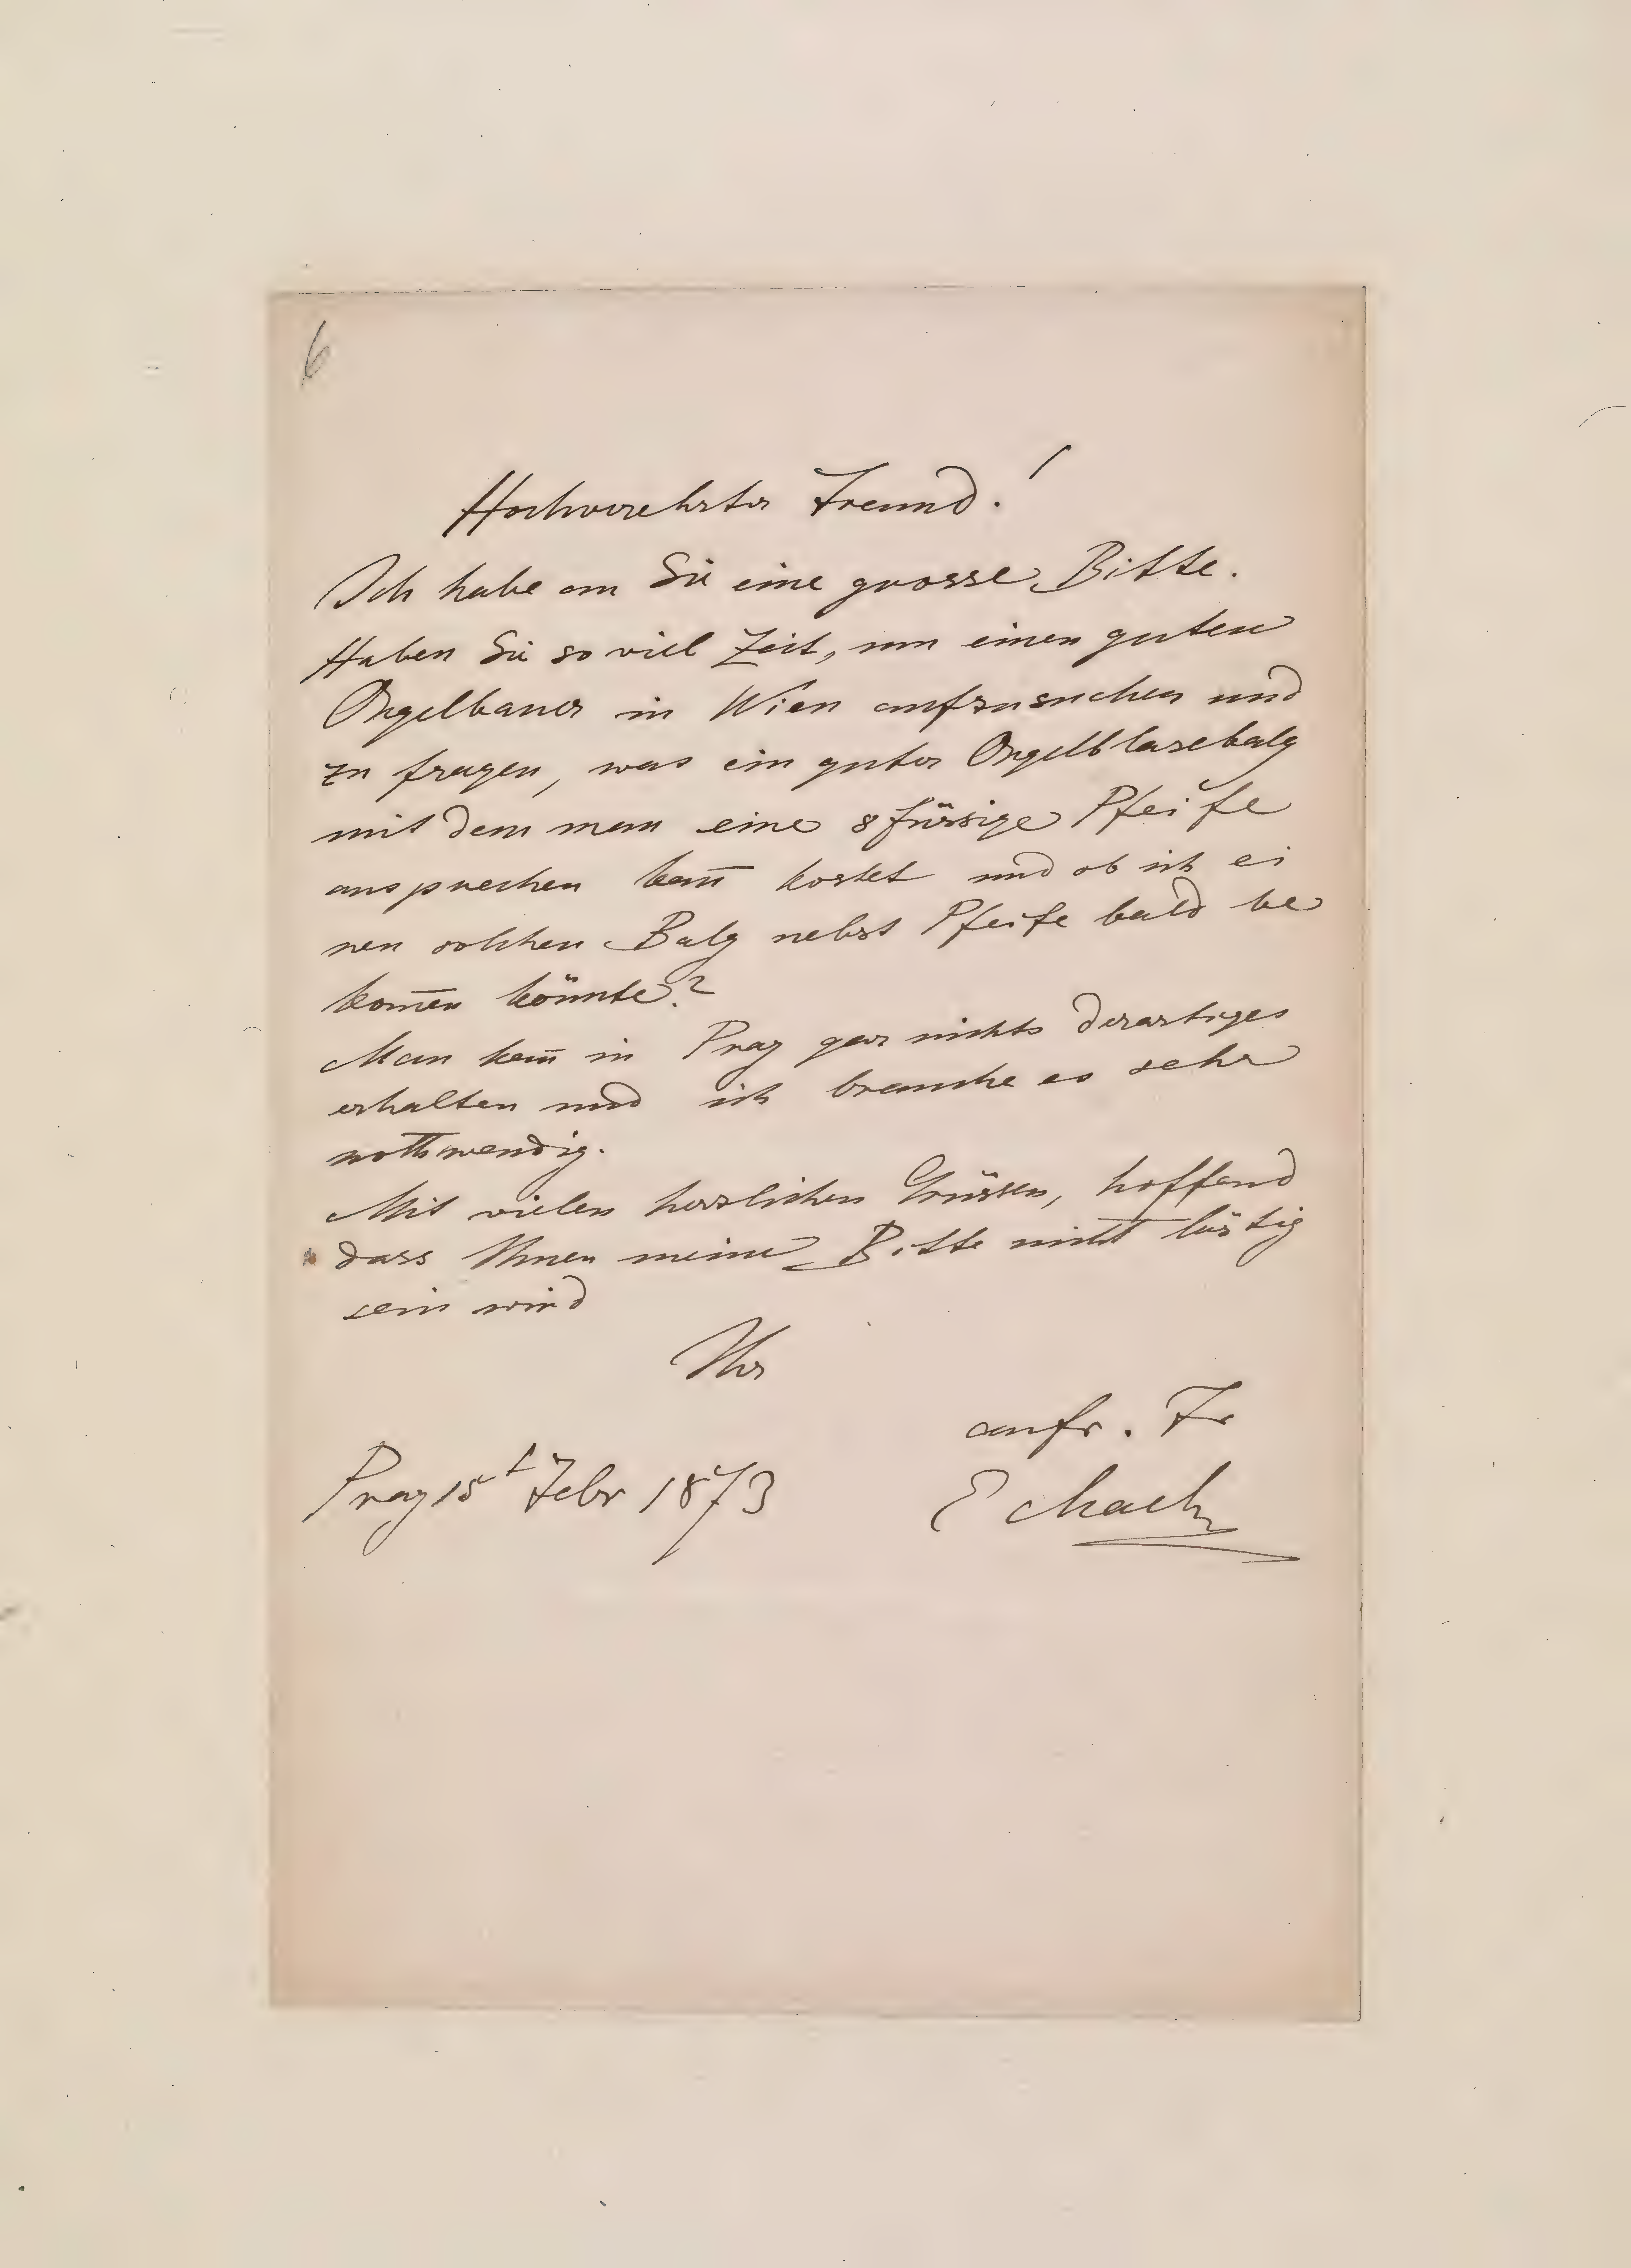 6
Hochverehrter Freund!
Ich habe an Sie eine grosse Bitte.
Haben Sie so viel Zeit, um einen guten
Orgelbauer in Wien aufzusuchen und
zu fragen, was ein guter Orgelblasebalg
mit dem man eine 8 füssige Pfeife
ansprechen kan̄ kostet und ob ich ei
nen solchen Balg nebst Pfeife bald be
kom̄en könnte?
Man kan̄ in Prag gar nichts derartiges
erhalten und ich brauche es sehr
nothwendig.
Mit vielen herzlichen Grüssen, hoffend
dass Ihnen meine Bitte nicht lästig
sein wird
Ihr
aufr. Fr
Prag 15t Febr 1873
E Mach